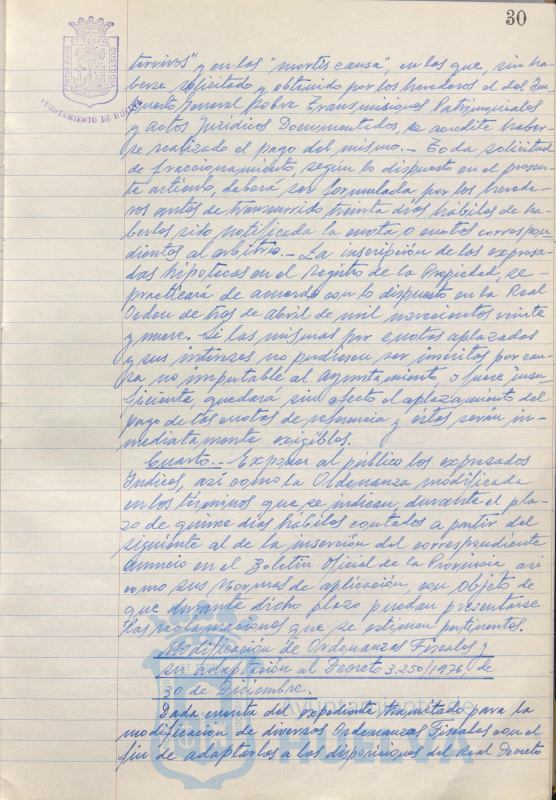 30
AYUNTAMIENTO DE HUELVA
tervivos" y en las "mortis causa", en las que, sin ha-
berse solicitado y obtenido por los herederos el del Im-
puesto General sobre Transmisiones Patrimoniales
y Actos Jurídicos Documentados, se acredite haber-
se realizado el pago del mismo.- Toda solicitud
de fraccionamiento, según lo dispuesto en el presen-
te artículo, deberá ser formulada por los herede-
ros antes de transcurrido treinta días hábiles de ha-
berles sido notificada la cuota o cuotas correspon-
dientes al arbitrio.- La inscripción de las expresa-
das hipotecas en el Registro de la Propiedad, se-
practicará de acuerdo con lo dispuesto en la Real
Orden de tres de abril de mil novecientos veinte
y nueve. Si las mismas por cuotas aplazadas
y sus intereses no pudiesen ser inscritas por cau-
sa no imputable al Ayuntamiento, o fuere insu-
ficiente, quedará sin efecto el aplazamiento del
pago de las cuotas de referencia y éstas serán in-
mediatamente exigibles.
Cuarto.- Exponer al público los expresados
Indices, así como la Ordenanza modificada
en los términos que se indican, durante el pla-
zo de quince días hábiles contados a partir del
siguiente al de la inserción del correspondiente
anuncio en el Boletín Oficial de la Provincia, así
como sus Normas de aplicación, con objeto de
que durante dicho plazo puedan presentarse
las reclamaciones que se estimen pertinentes.
Modificación de Ordenanzas Fiscales y
su adaptación al Decreto 3.250/1976, de
30 de Diciembre.
Dada cuenta del expediente tramitado para la
modificación de diversas Ordenanzas Fiscales con el
fin de adaptarlas a las disposiciones del Real Decreto
Ayuntamiento de
HUELVA